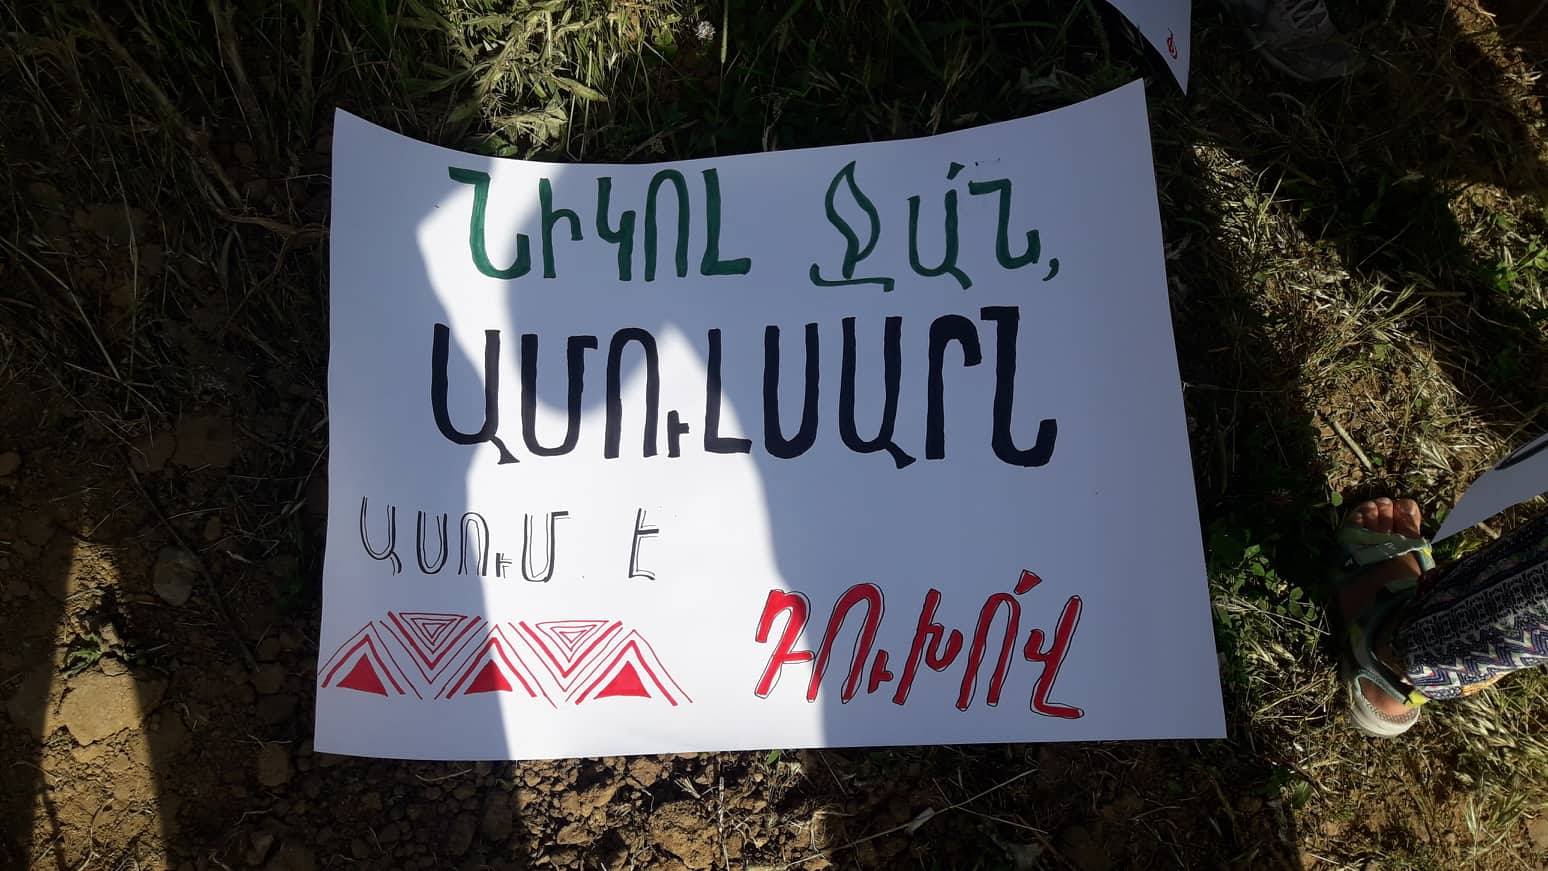 ՆԻԿՈԼ ՋԱ՛Ն,
ԱՄՈՒԼՍԱՐՆ
ԱՍՈՒՄ Է
ԴՈՒԽՈ՛Վ